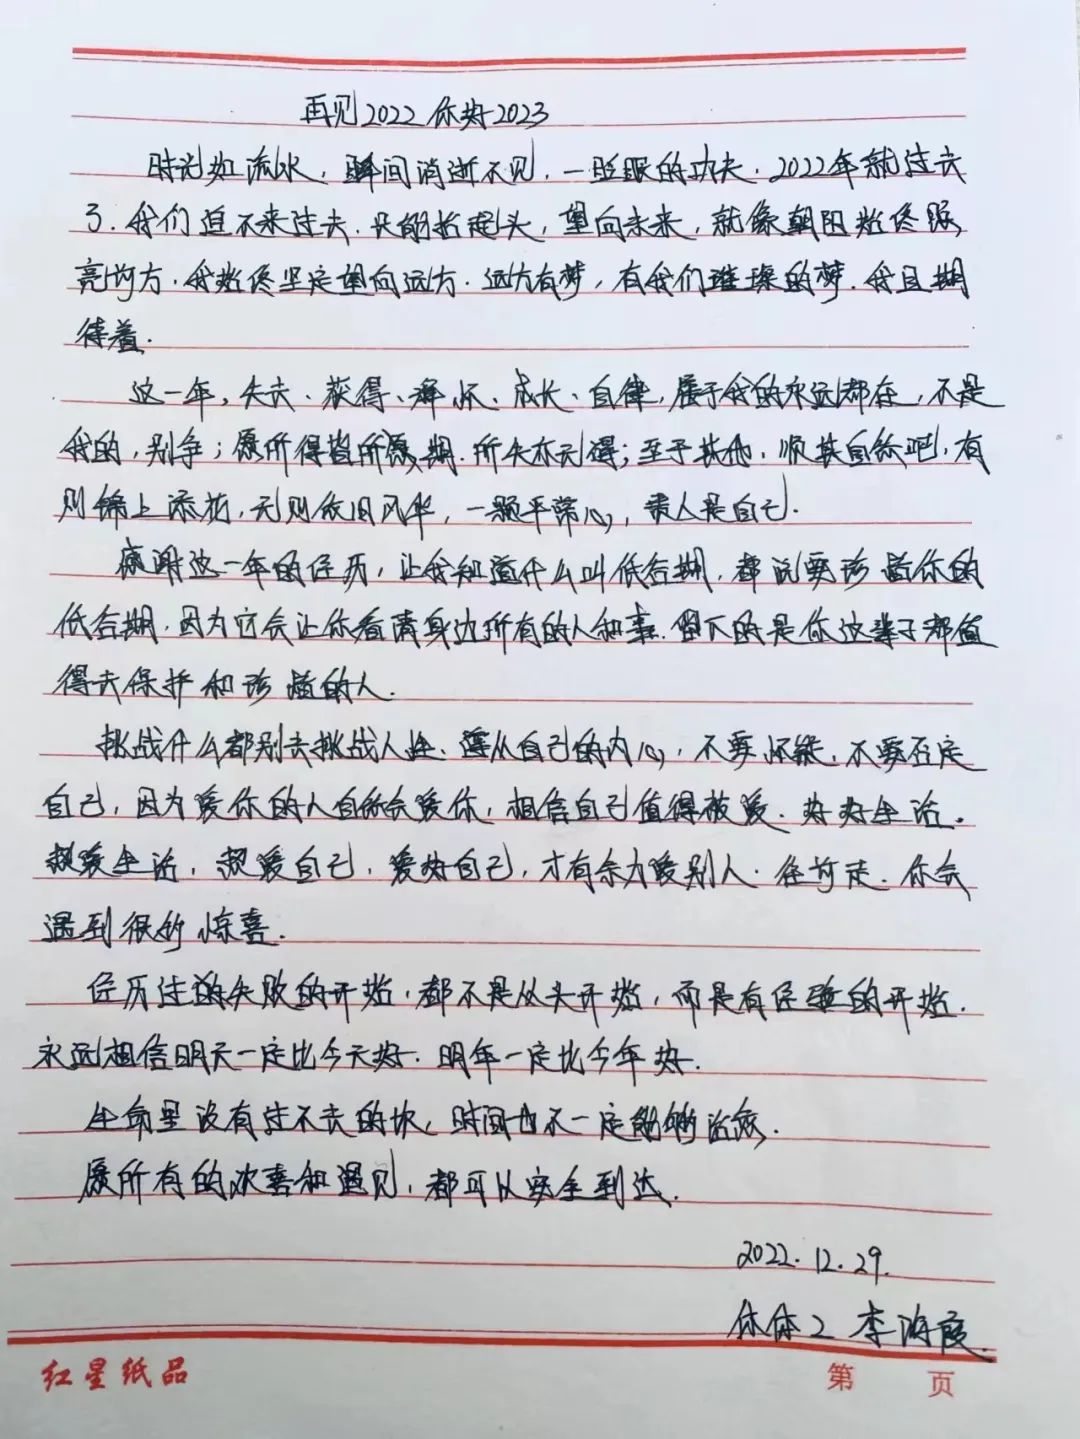 再见2022 你好2023
时光如流水，瞬间消逝不见，一眨眼的功夫，2022年就过去
了．我们追不来过去．只能抬起头，望向未来，就像朝阳始终照
亮河方．我始终坚定望向远方．远方有梦，有我们璀璨的梦．我且期
待着．
这一年，失去、获得、释怀、成长、自律，属于我的永远都在，不是
我的，别争；愿所得皆所愿期．所失亦无碍；至于其他，顺其自然吧，有
则锦上添花，无则依旧风华，一颗平常心，贵人是自己．
感谢这一年的经历，让我知道什么叫低谷期，都说要珍惜你的
低谷期．因为它会让你看清身边所有的人和事．留下的是你这辈子都值
得去保护和珍惜的人．
挑战什么都别去挑战人性．遵从自己的内心，不要怀疑．不要否定
自己，因为爱你的人自然会爱你，相信自己值得被爱．好好生活。
热爱生活，热爱自己，爱好自己，才有余力爱别人．往前走．你会
遇到很的惊喜．
经历过的失败的开始，都不是从头开始，而是有经验的开始．
永远相信明天一定比今天好．明年一定比今年好．
生命里没有过不去的坎，时间也不一定能够治愈．
愿所有的欢喜和遇见，都可以安全到达．
2022.12.29.
休体2 李海霞
红星纸品
第 页